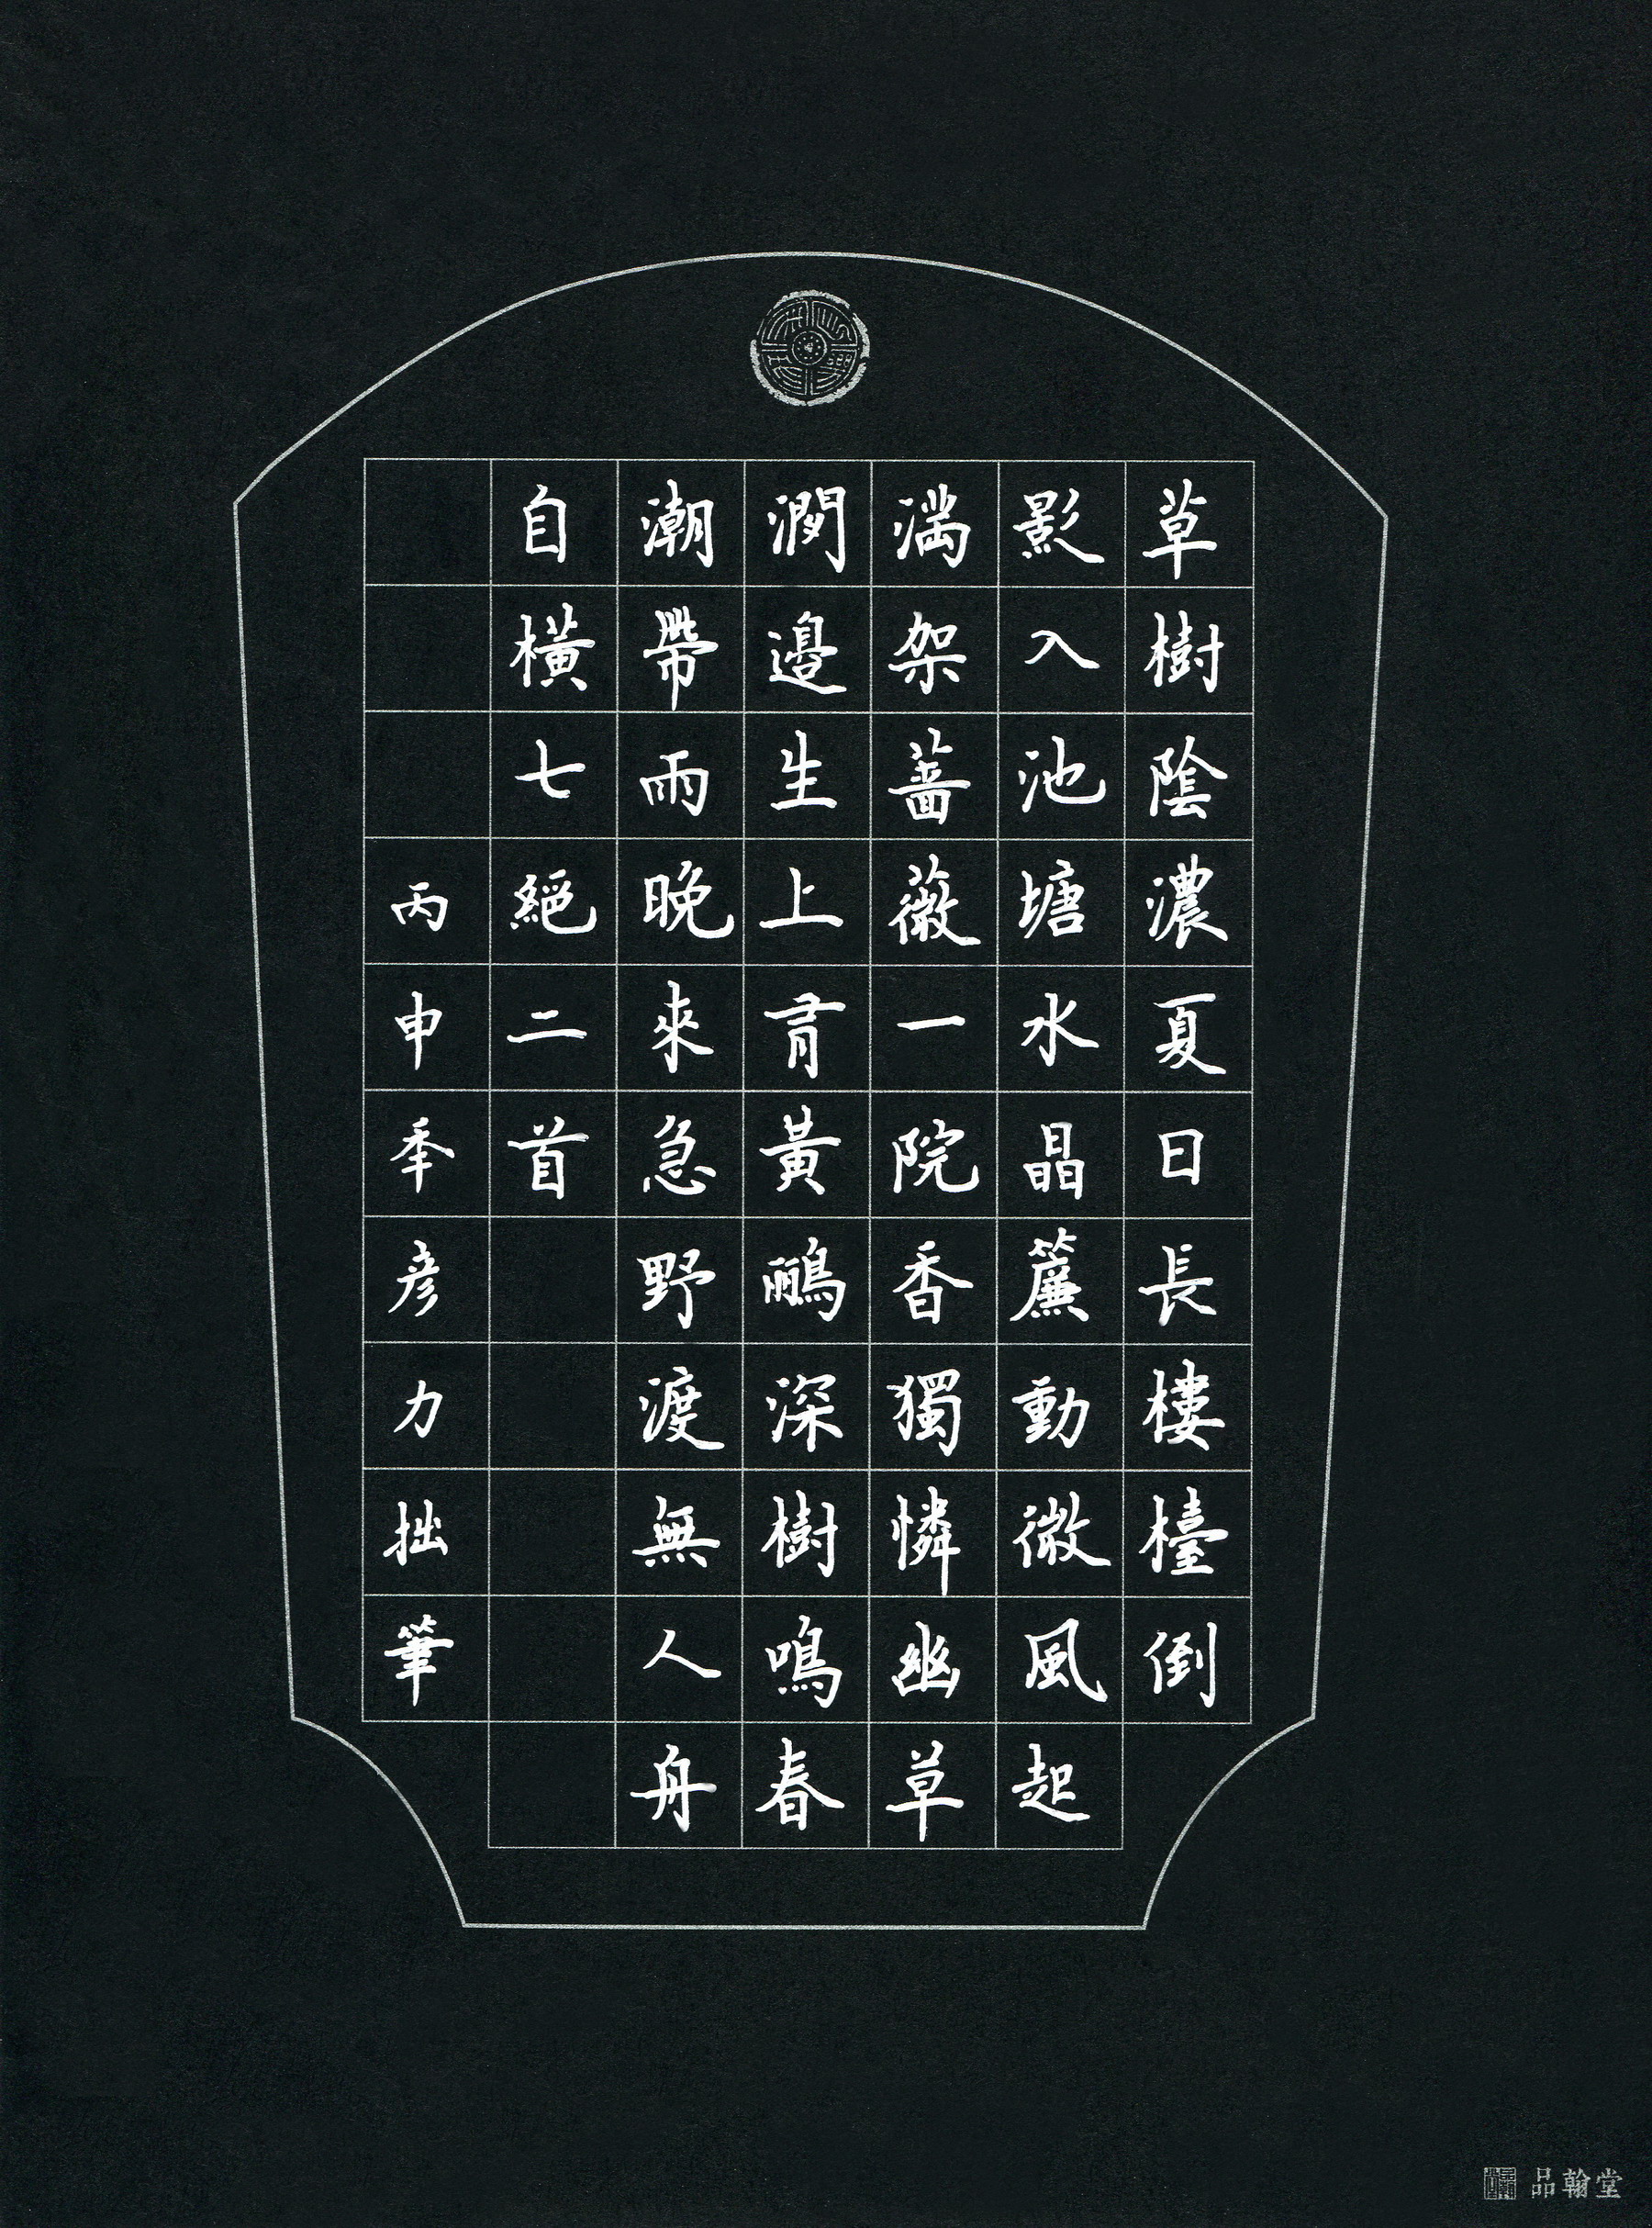 草樹陰濃夏日長樓檯倒
影入池塘水晶簾動微風起
滿架薔薇一院香獨憐幽草
澗邊生上有黃鸝深樹鳴春
潮帶雨晚來急野渡無人舟
自橫七絕二首
丙申年彥力拙筆
品翰堂